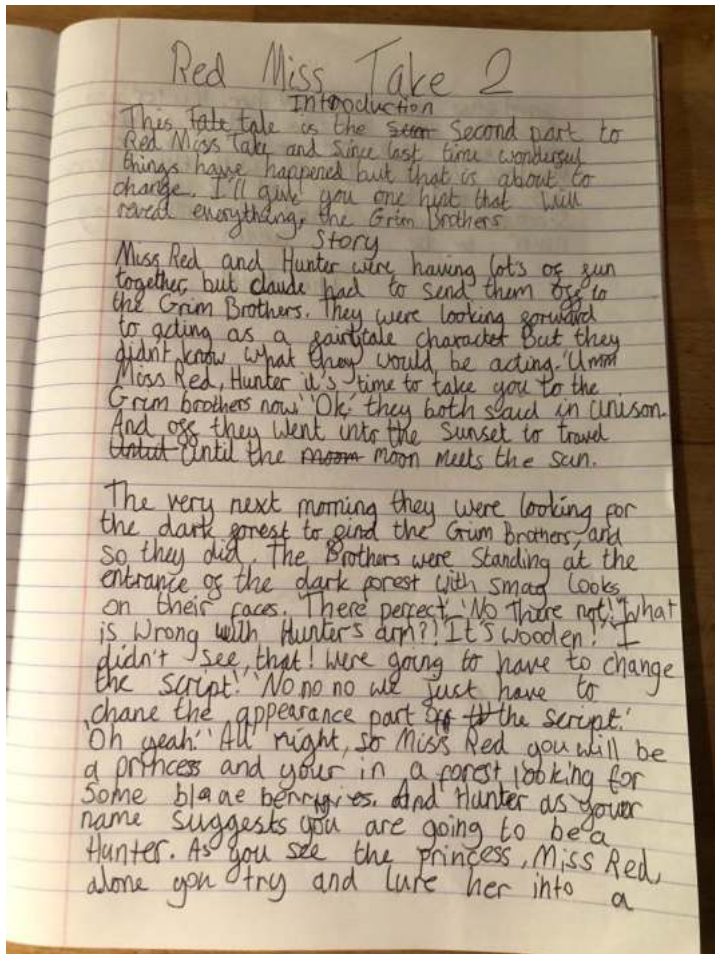 Red Miss Take 2
Introduction
This Fate tale is the Second part to
Red Miss Take and since last time wonderful
things have happened but that is about to
change. I'll give you one hint that will
reveal everything, the Grim Brothers
Story
Miss Red and Hunter were having lots of fun
together, but claude had to send them off to
the Grim Brothers. They were looking forward
to acting as a fairitale character But they
didn't know what they would be acting. 'Umm
Miss Red, Hunter it's time to take you to the
Grim brothers now' 'Ok,' they both said in unison.
And off they went into the Sunset to travel
Until the moom moon meets the sun.
The very next morning they were looking for
the dark forest to find the Grim Brothers, and
so they did. The Brothers were Standing at the
entrance of the dark forest with smag looks
on their faces. 'There perfect,' 'No There not!' 'What
is Wrong with Hunter's arm?! It's wooden!' 'I
didn't see that! Were going to have to change
the script!' 'No no no we just have to
chane the appearance part the script.'
'Oh yeah.' 'All right, so Miss Red you will be
a princess and your in a forest looking for
Some And Hunter as your
name suggests you are going to be a
Hunter. As you see the princess, Miss Red,
alone you try and lure her into a